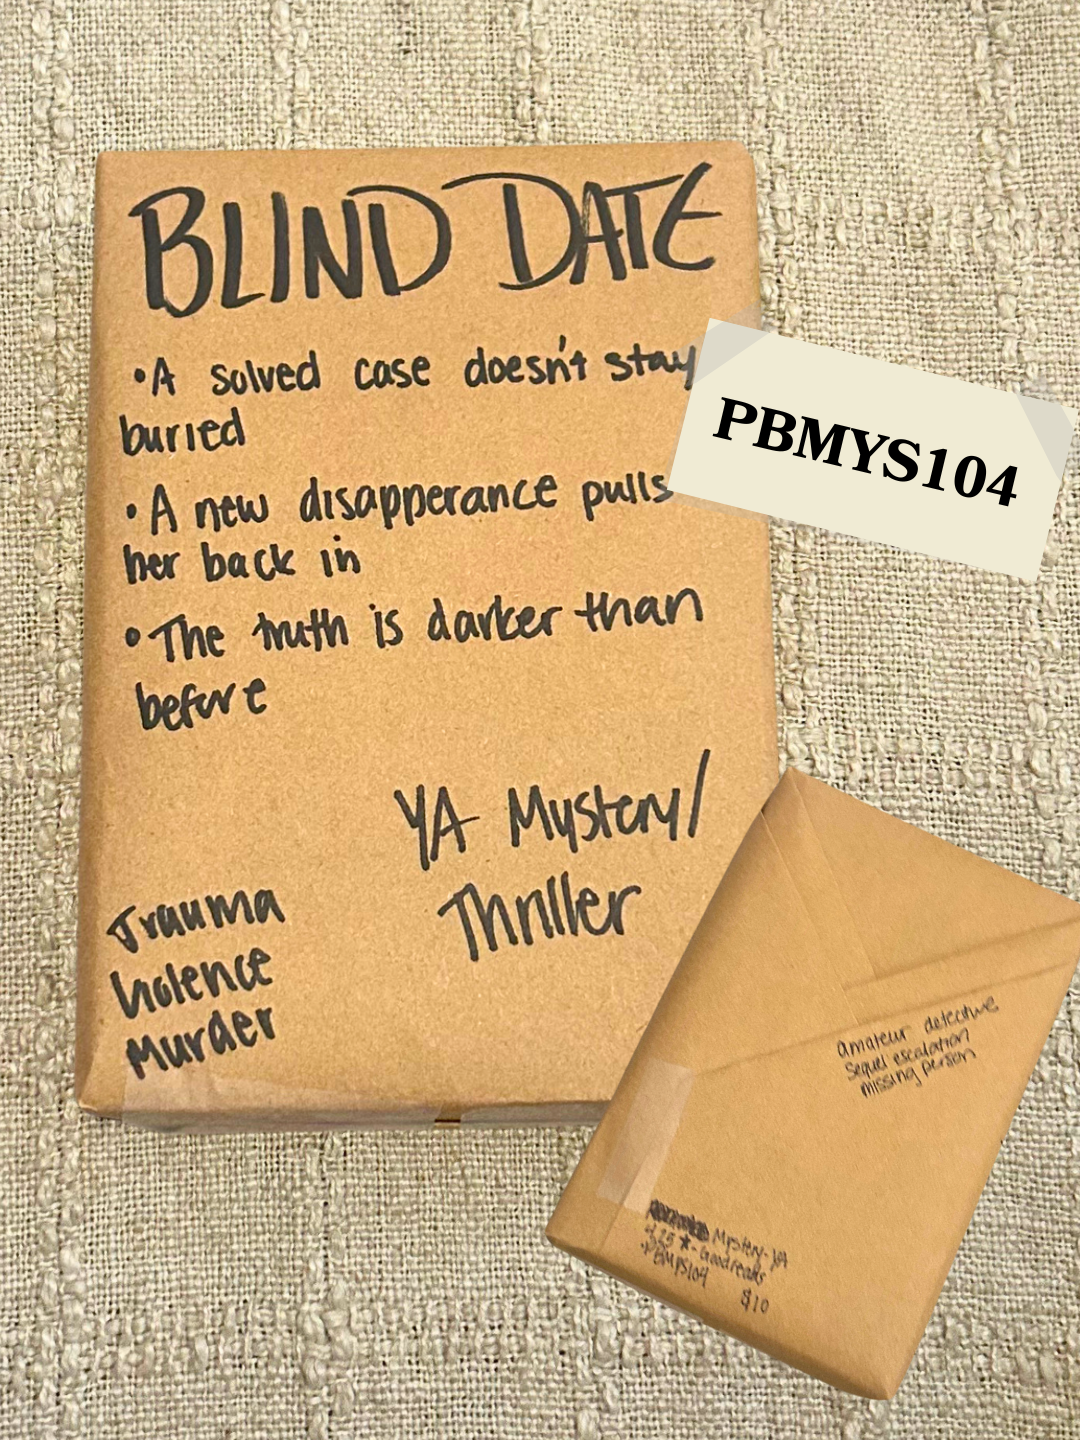 BLIND DATE
•A solved case doesn't stay
buried
•A new disapperance pulls
her back in
•The truth is darker than
before
YA Mystery/
Thriller
Trauma
Violence
Murder
PBMYS104
amateur detective
sequel escalation
missing person
Mystery-YA
★-Goodreads
$10